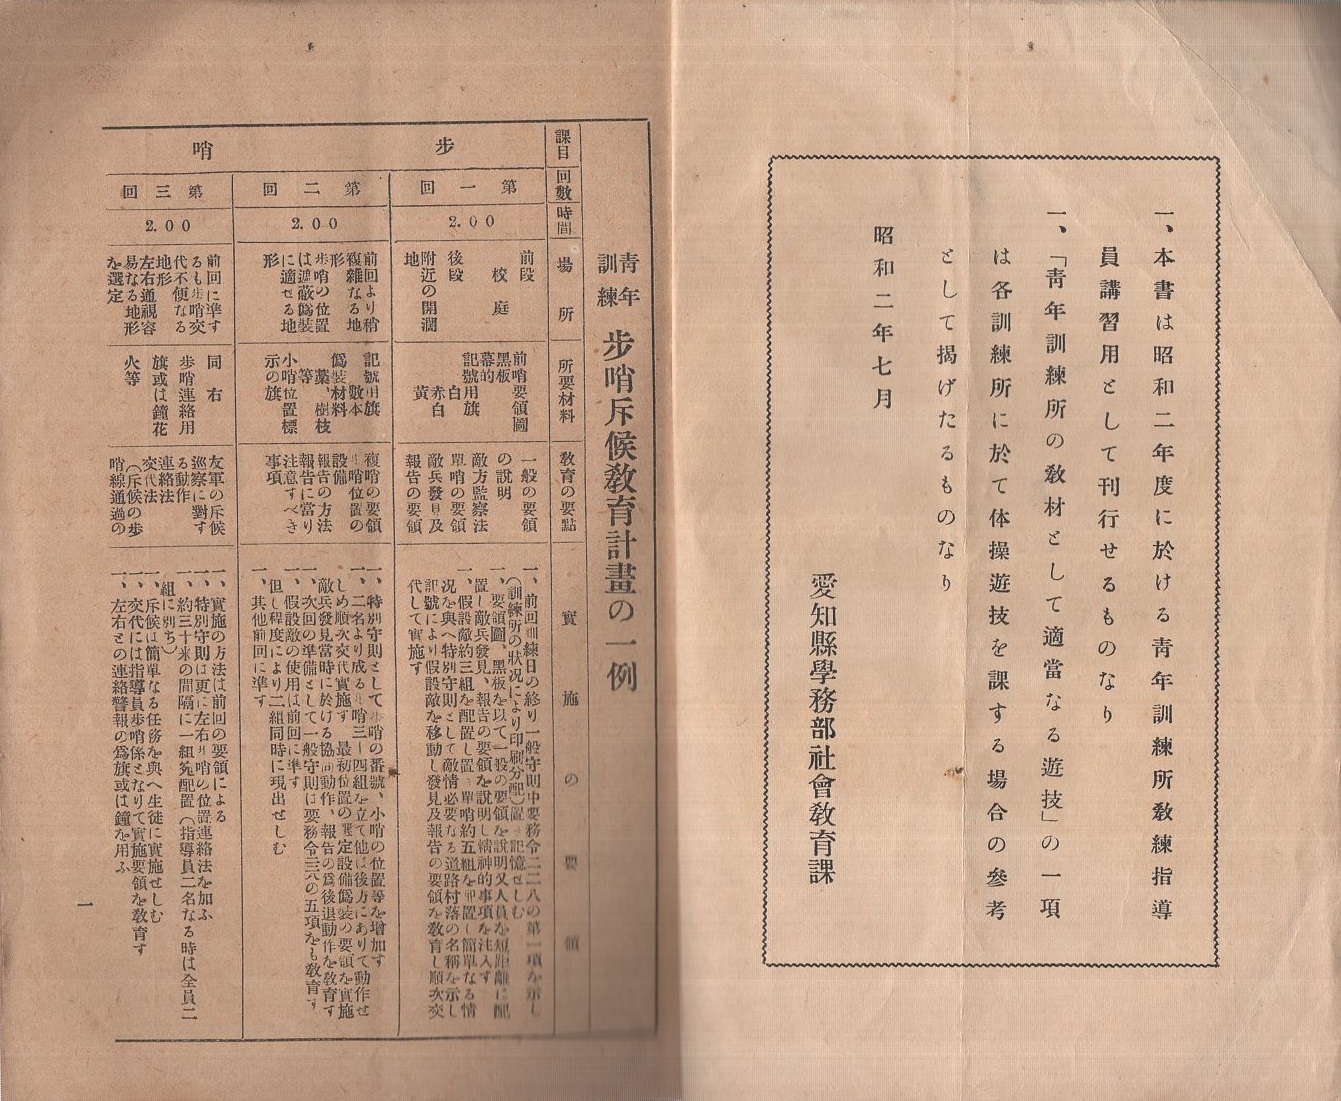 一、本書は昭和二年度に於ける靑年訓練所敎練指導
員講習用として刊行せるものなり
一、「靑年訓練所の敎材として適當なる遊技」の一項
は各訓練所に於て体操遊技を課する塲合の參考
として揭げたるものなり
昭和二年七月
愛知縣學務部社會敎育課
靑年訓練 步哨斥候敎育計畫の一例
課目
回數
時間
塲所
所要材料
敎育の要點
實施の要領
步哨
第一回
2.00
前段
校庭
後段
附近の開濶
地
前哨要領圖
黑板
幕的
記號用旗
白
赤白
黃
一般の要領
の說明
敵方監察法
單哨の要領
敵兵發見及
報告の要領
一、前回訓練日の終り一般守則中要務令二二八の第一項を示し
(訓練所の狀況により印刷分配)置き記憶せしむ
一、要領圖、黑板を以て一般の要領を說明又人員を短距離に配
置し敵兵發見、報告の要領を說明し精神的事項を注入す
一、假設敵約三組を配置し置き單哨約五組を配置し簡單なる情
況を與へ特別守則として敵情必要なる道路村落の名稱を示し
記號により假設敵を移動し發見及報告の要領を敎育し順次交
代して實施す
第二回
2.00
前回より稍
複雜なる地
形
步哨の位置
は遮蔽僞裝
に適せる地
形
記號用旗
數本
僞裝材料
藁、樹枝
等
小哨位置標
示の旗
複哨の要領
步哨位置の
設備
報告の方法
報告に當り
注意すべき
事項
一、特別守則として步哨の番號、小哨の位置等を增加す
一、二名より成る步哨三—四組を立て他は後方にありて動作せ
しめ順次交代實施す 最初位置の選定設備僞裝の要領を實施
敵兵發見當時に於ける協同動作、報告の爲後退動作を敎育す
一、次回の準備として一般守則は要務令二二八の五項をも敎育す
一、假設敵の使用は前回に準す
但し程度により二組同時に現出せしむ
一、其他前回に準す
第三回
2.00
前回に準す
るも步哨交
代不便なる
地形
左右通視容
易なる地形
を選定
同右
步哨連絡用
旗或は鐘花
火等
友軍の斥候
巡察に對す
る動作
連絡法
交代法
(斥候の步
哨線通過の
一、實施の方法は前回の要領による
一、特別守則は更に左右步哨の位置連絡法を加ふ
一、約三十米の間隔に一組宛配置(指導員二名なる時は全員二
組に別ち)
一、斥候は簡單なる任務を與へ生徒に實施せしむ
一、交代には指導員步哨係となりて實施要領を敎育す
一、左右との連絡警報の爲旗或は鐘を用ふ
一